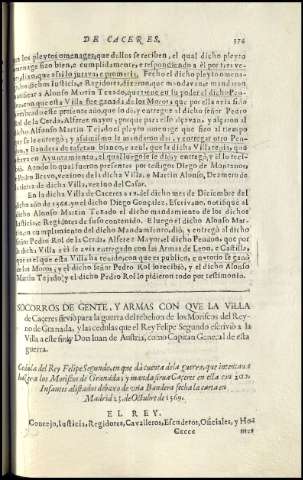 DE CACERES. 374
en los pleytos omenages, que dellos se reciben, el qual dicho pleyto
omenage fizo bien, e cumplidamente, e respondiendo a el por tres ve-
que assi lo jurava e prometia. Fecho el dicho pleyto omena-
Iusticia, e Regidores, dixeron, que mandavan e mandaron
a Alonso Martin Texado, que tiene en su poder el dicho Pen-
don, que esta Villa fue ganada de los Moros; que por ella e en su
nombre de oy en este presente año, que lo dè, y entregue al dicho señor Pedro
Rol de la Cerda, Alferez mayor, porque para esto
dicho Alfonso Martin Tejado el pleyto omenage que fizo al tiempo
que se le entregò, y assi mismo le mandaron de, y entregue otro Pen-
don, y Bandera de tafetan blanco, e azul, que la dicha Villa tenia, que
estava en Ayuntamiento, el qual luego se diò, y entregò, y el lo reci-
biò. A todo lo qual fueron presentes por testigos Diego de Matamoros
e Pedro Bravo, vezinos de la dicha Villa, e Martin Alonso,
de la dicha Villa, vezino del Casar.
En la dicha Villa de Caceres a 19. del dicho mes de Diziembre del
dicho año de 1568. yo el dicho Diego Gonçalez, Escrivano, notifiquè a
dicho Alonso Martin Texado el dicho mandamiento de los dichos
Iusticia, e Regidores de suso contenido. E luego el dicho Alonso Mar-
tin, en cumplimiento del dicho Mandamiento, diò, y entregò al dicho
señor Pedro Rol de la Cerda, Alferez Mayor, el dicho Pendon, que por
la dicha Villa a el se avia entregado con las Armas de Leon, e Castilla,
que es el que esta Villa ha tenido, con que es publico, e notorio se ganò
de los Moros; y el dicho señor Pedro Rol lo recibiò, y el dicho Alonso
Martin Texado; y el dicho Pedro Rol lo pidieron todo por testimonio.
SOCORROS DE GENTE, Y ARMAS CON QVE LA VILLA
de Caceres sirviò para la guerra del rebelion de los Moriscos del Rey-
no de Granada, y las cedulas que el Rey Felipe Segundo escriviò a la
Villa, a este fin, y Don Iuan de Austria, como Capitan General de esta
guerra.
Cedula del Rey Felipe Segundo, en que dà cuenta de la guerra, que intentavan
hazer los Moriscos de Granada, y manda sirva Caceres en ella con 200.
Infantes alistados debaxo de una Bandera, fecha la carta en
Madrid 25. de Octubre de 1569.
EL REY.
Concejo, Iusticia, Regidores, Cavalleros, Escuderos, Oficiales, y Ho-
Cccc